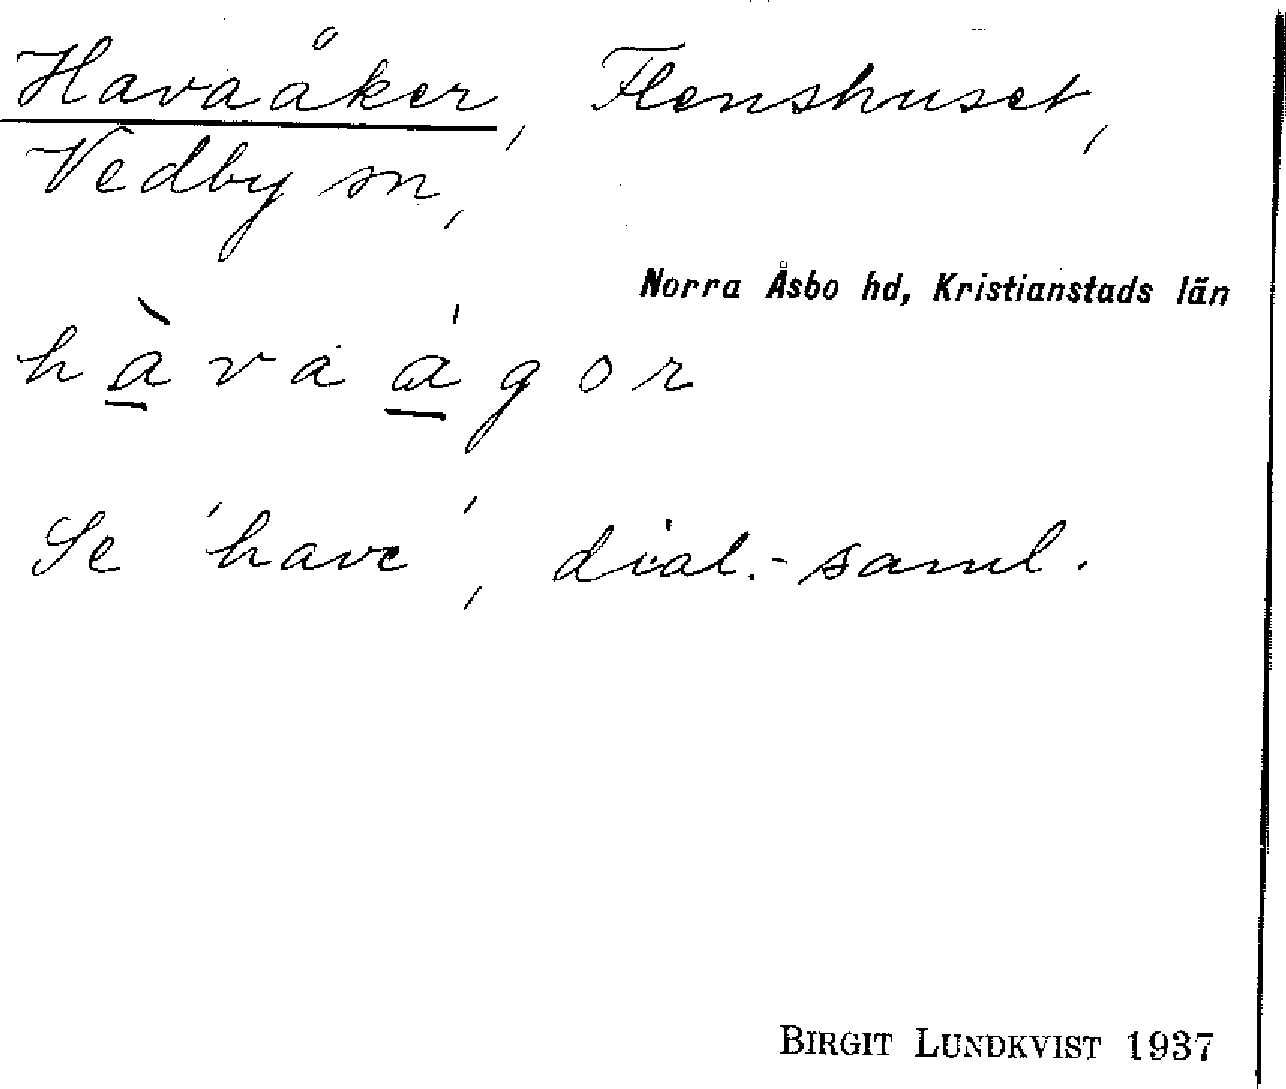 Havaåker, Flenshuset,
Vedby sn,
Norra Åsbo hd, Kristianstads län
hàvaágor
Se 'have', dial.-saml.
BIRGIT LUNDKVIST 1937